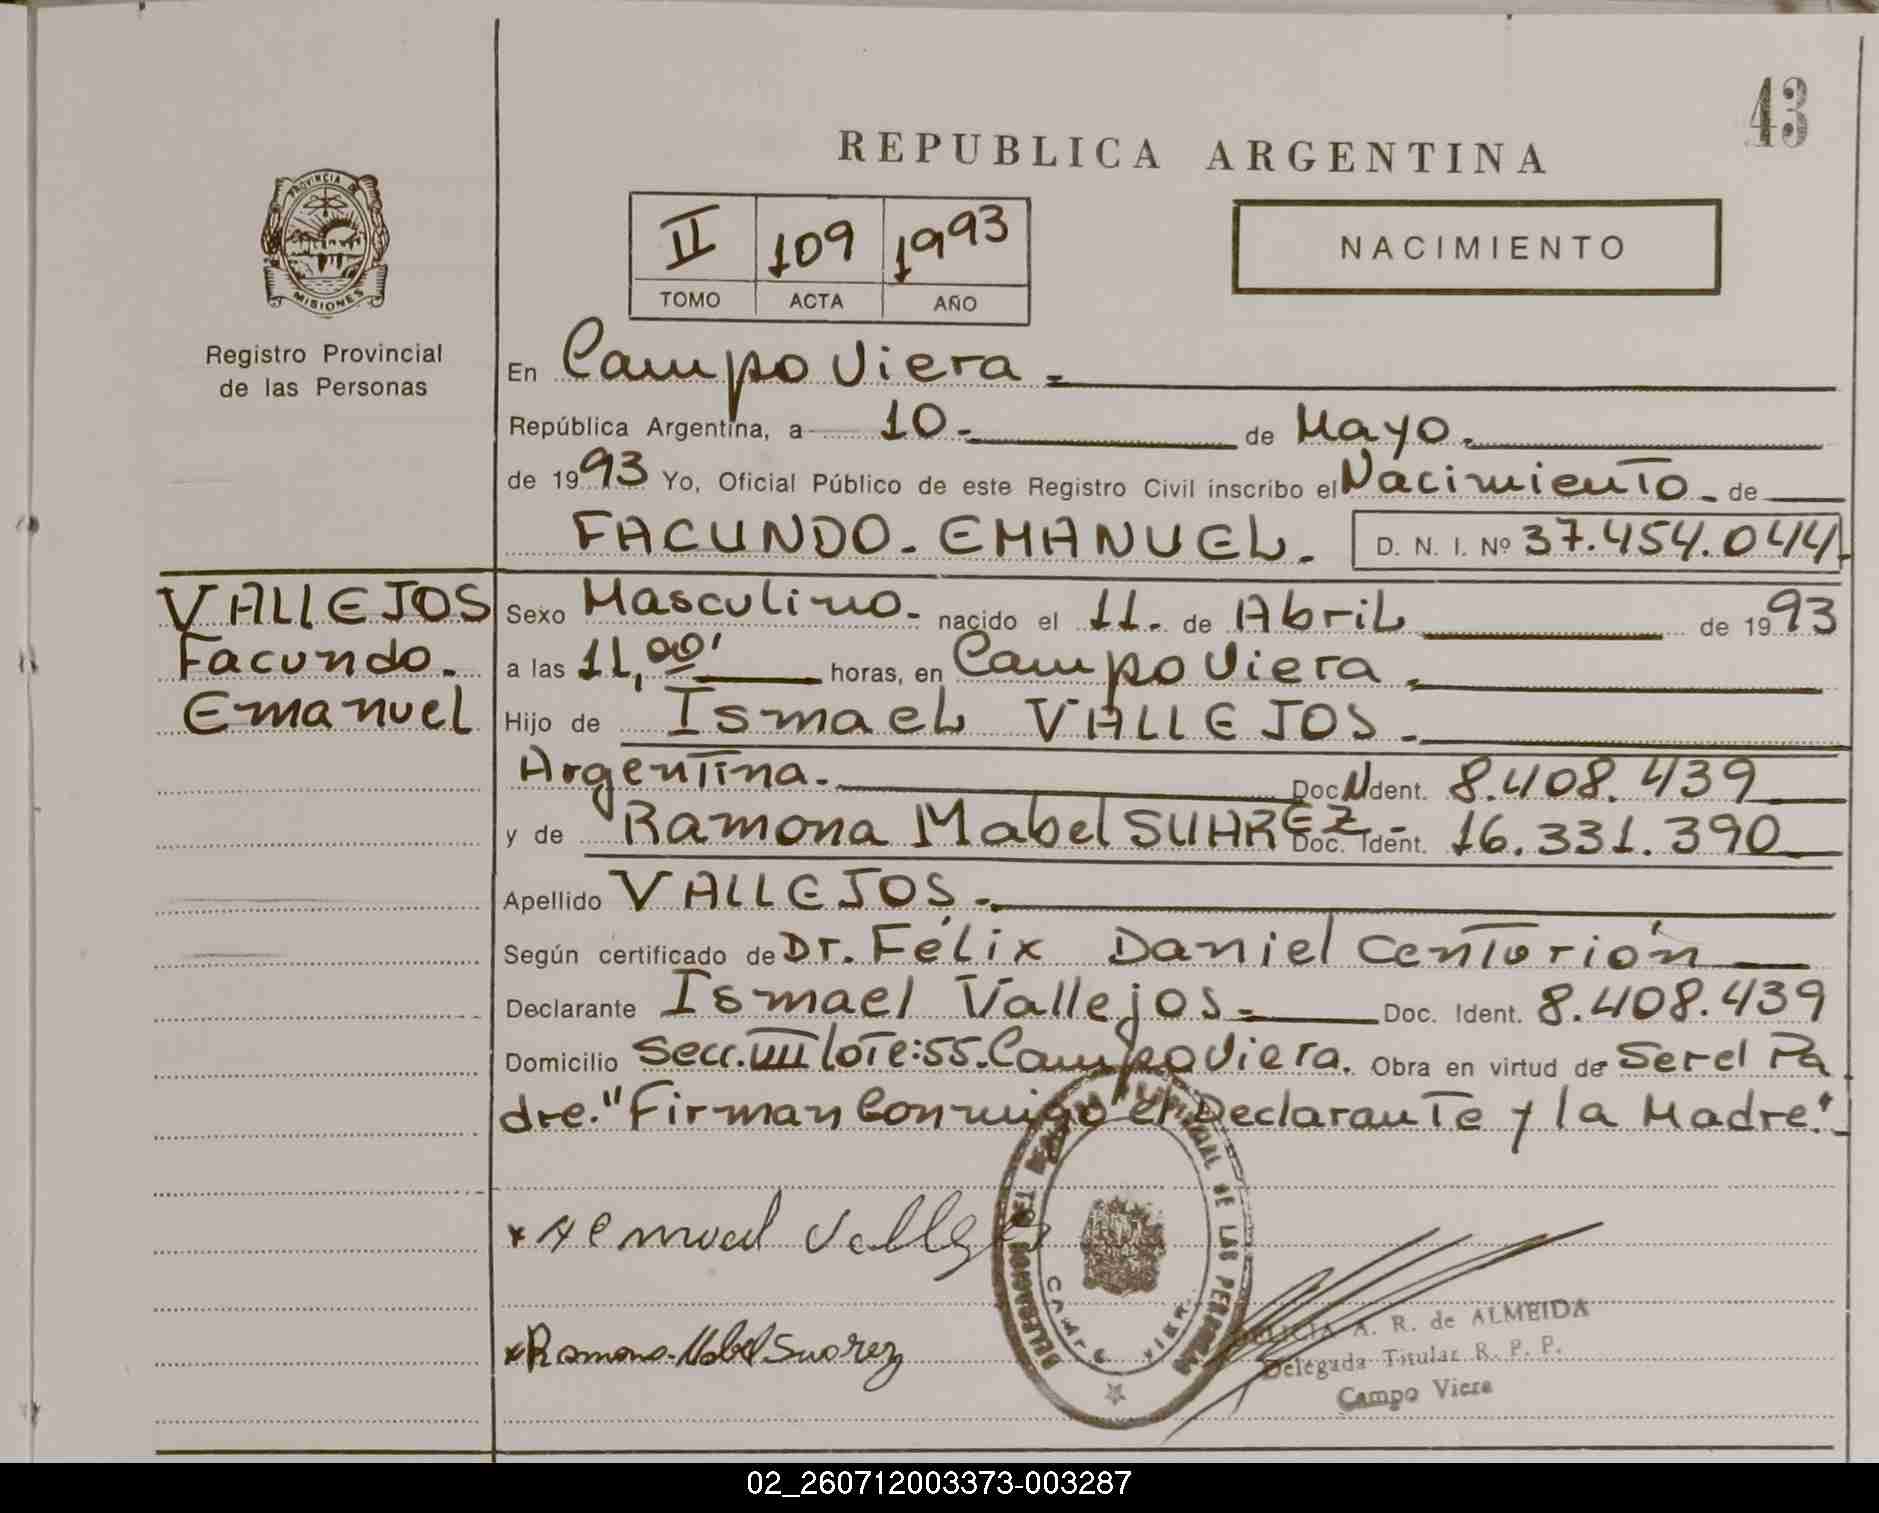 43
REPUBLICA ARGENTINA
PROVINCIA DE
MISIONES
Registro Provincial
de las Personas
II 109 1993
TOMO ACTA AÑO
NACIMIENTO
En Campo Viera.
República Argentina, a 10. de Mayo.
de 1993 Yo, Oficial Público de este Registro Civil inscribo el Nacimiento. de
FACUNDO. EMANUEL. D. N. I. Nº 37.454.044
VALLEJOS
Facundo.
Emanuel
Sexo Masculino. nacido el 11. de Abril de 1993
a las 11,00' horas, en Campo Viera.
Hijo de Ismael VALLEJOS.
Argentina. Doc. Ident. 8.408.439
y de Ramona Mabel SUAREZ. Doc. Ident. 16.331.390
Apellido VALLEJOS.
Según certificado de Dr. Félix Daniel Centorión
Declarante Ismael Vallejos. Doc. Ident. 8.408.439
Domicilio Secc. VIII lote:55. Campo Viera. Obra en virtud de Ser el Pa
dre. "Firman Conmigo el Declarante y la Madre".
Vallejos
Ramona Mabel Suarez
DE LAS PERSONAS
CAMPO VIERA
A. R. de ALMEIDA
Delegada Titular R. P. P.
Campo Viera
02_260712003373-003287